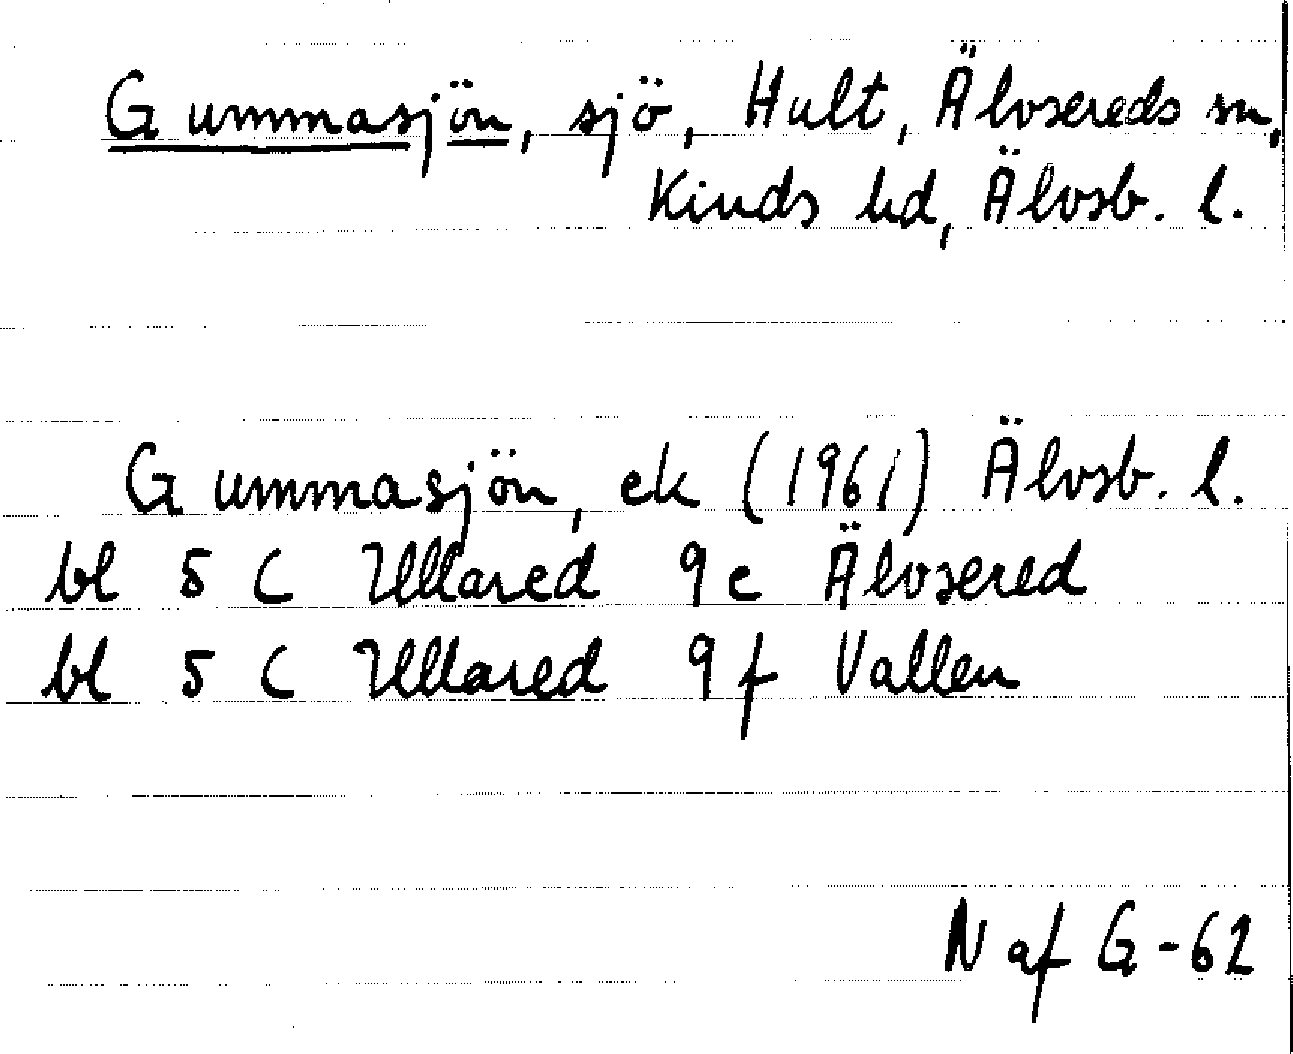 Gummasjön, sjö, Hult, Älvsereds sn,
Kinds hd, Älvsb. l.
Gummasjön, ek (1961) Älvsb. l.
bl 5 C Ullared 9 e Älvsered
bl 5 C Ullared 9 f Vallen
N af G -62